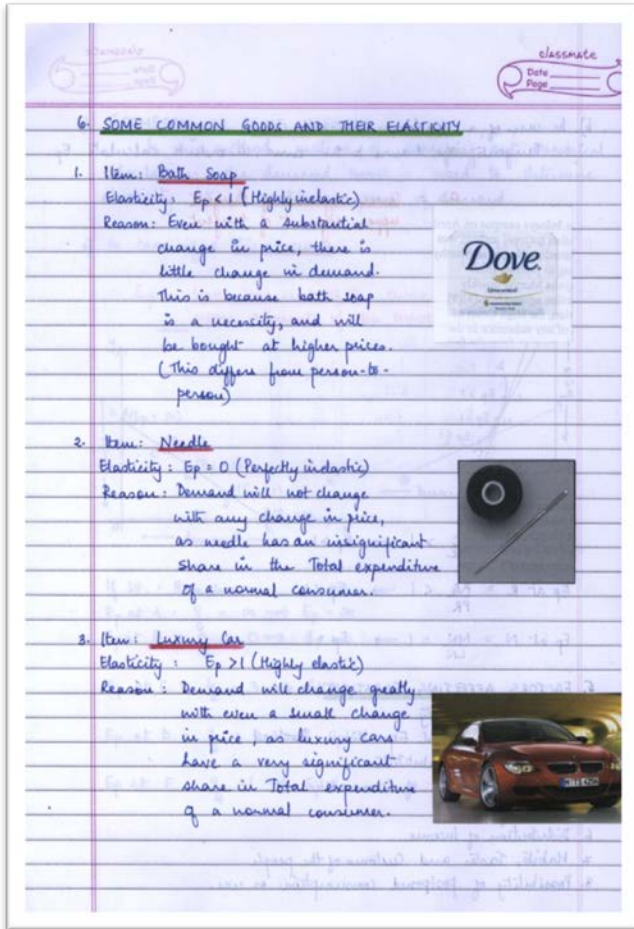 classmate
Date
Page
6. SOME COMMON GOODS AND THEIR ELASTICITY
1. Item: Bath Soap
Elasticity: Ep < 1 (Highly inelastic)
Reason: Even with a substantial
change in price, there is
little change in demand.
This is because bath soap
is a necessity, and will
be bought at higher prices.
(This differs from person-to-
person)
Dove
2. Item: Needle
Elasticity: Ep = 0 (Perfectly inelastic)
Reason: Demand will not change
with any change in price,
as needle has an insignificant
share in the Total expenditure
of a normal consumer.
3. Item: Luxury Car
Elasticity: Ep > 1 (Highly elastic)
Reason: Demand will change greatly
with even a small change
in price, as luxury cars
have a very significant
share in Total expenditure
of a normal consumer.